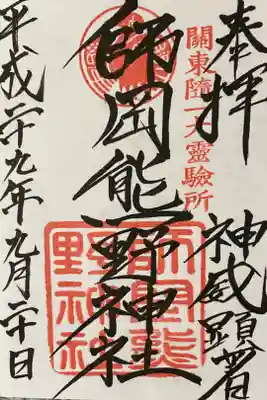 奉拝
神威顕著
關東随一大靈驗所
師岡熊野神社
師岡熊野神社
平成二十九年九月二十日